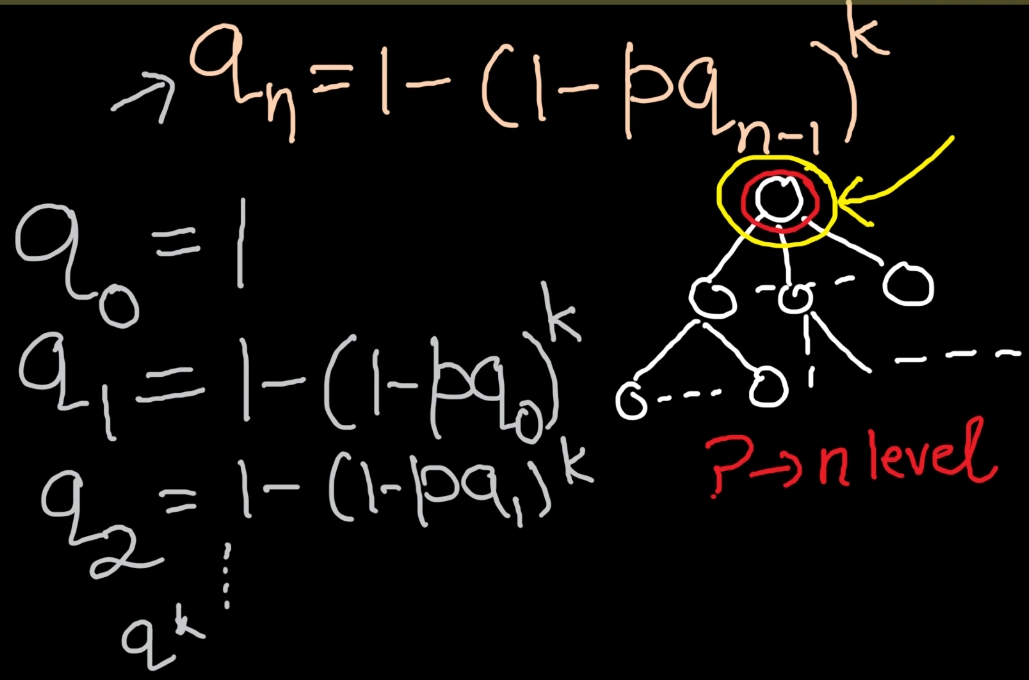 → qₙ = 1 - (1 - pqₙ₋₁)ᵏ
q₀ = 1
q₁ = 1 - (1 - pq₀)ᵏ
q₂ = 1 - (1 - pq₁)ᵏ
P → n level
qᵏ